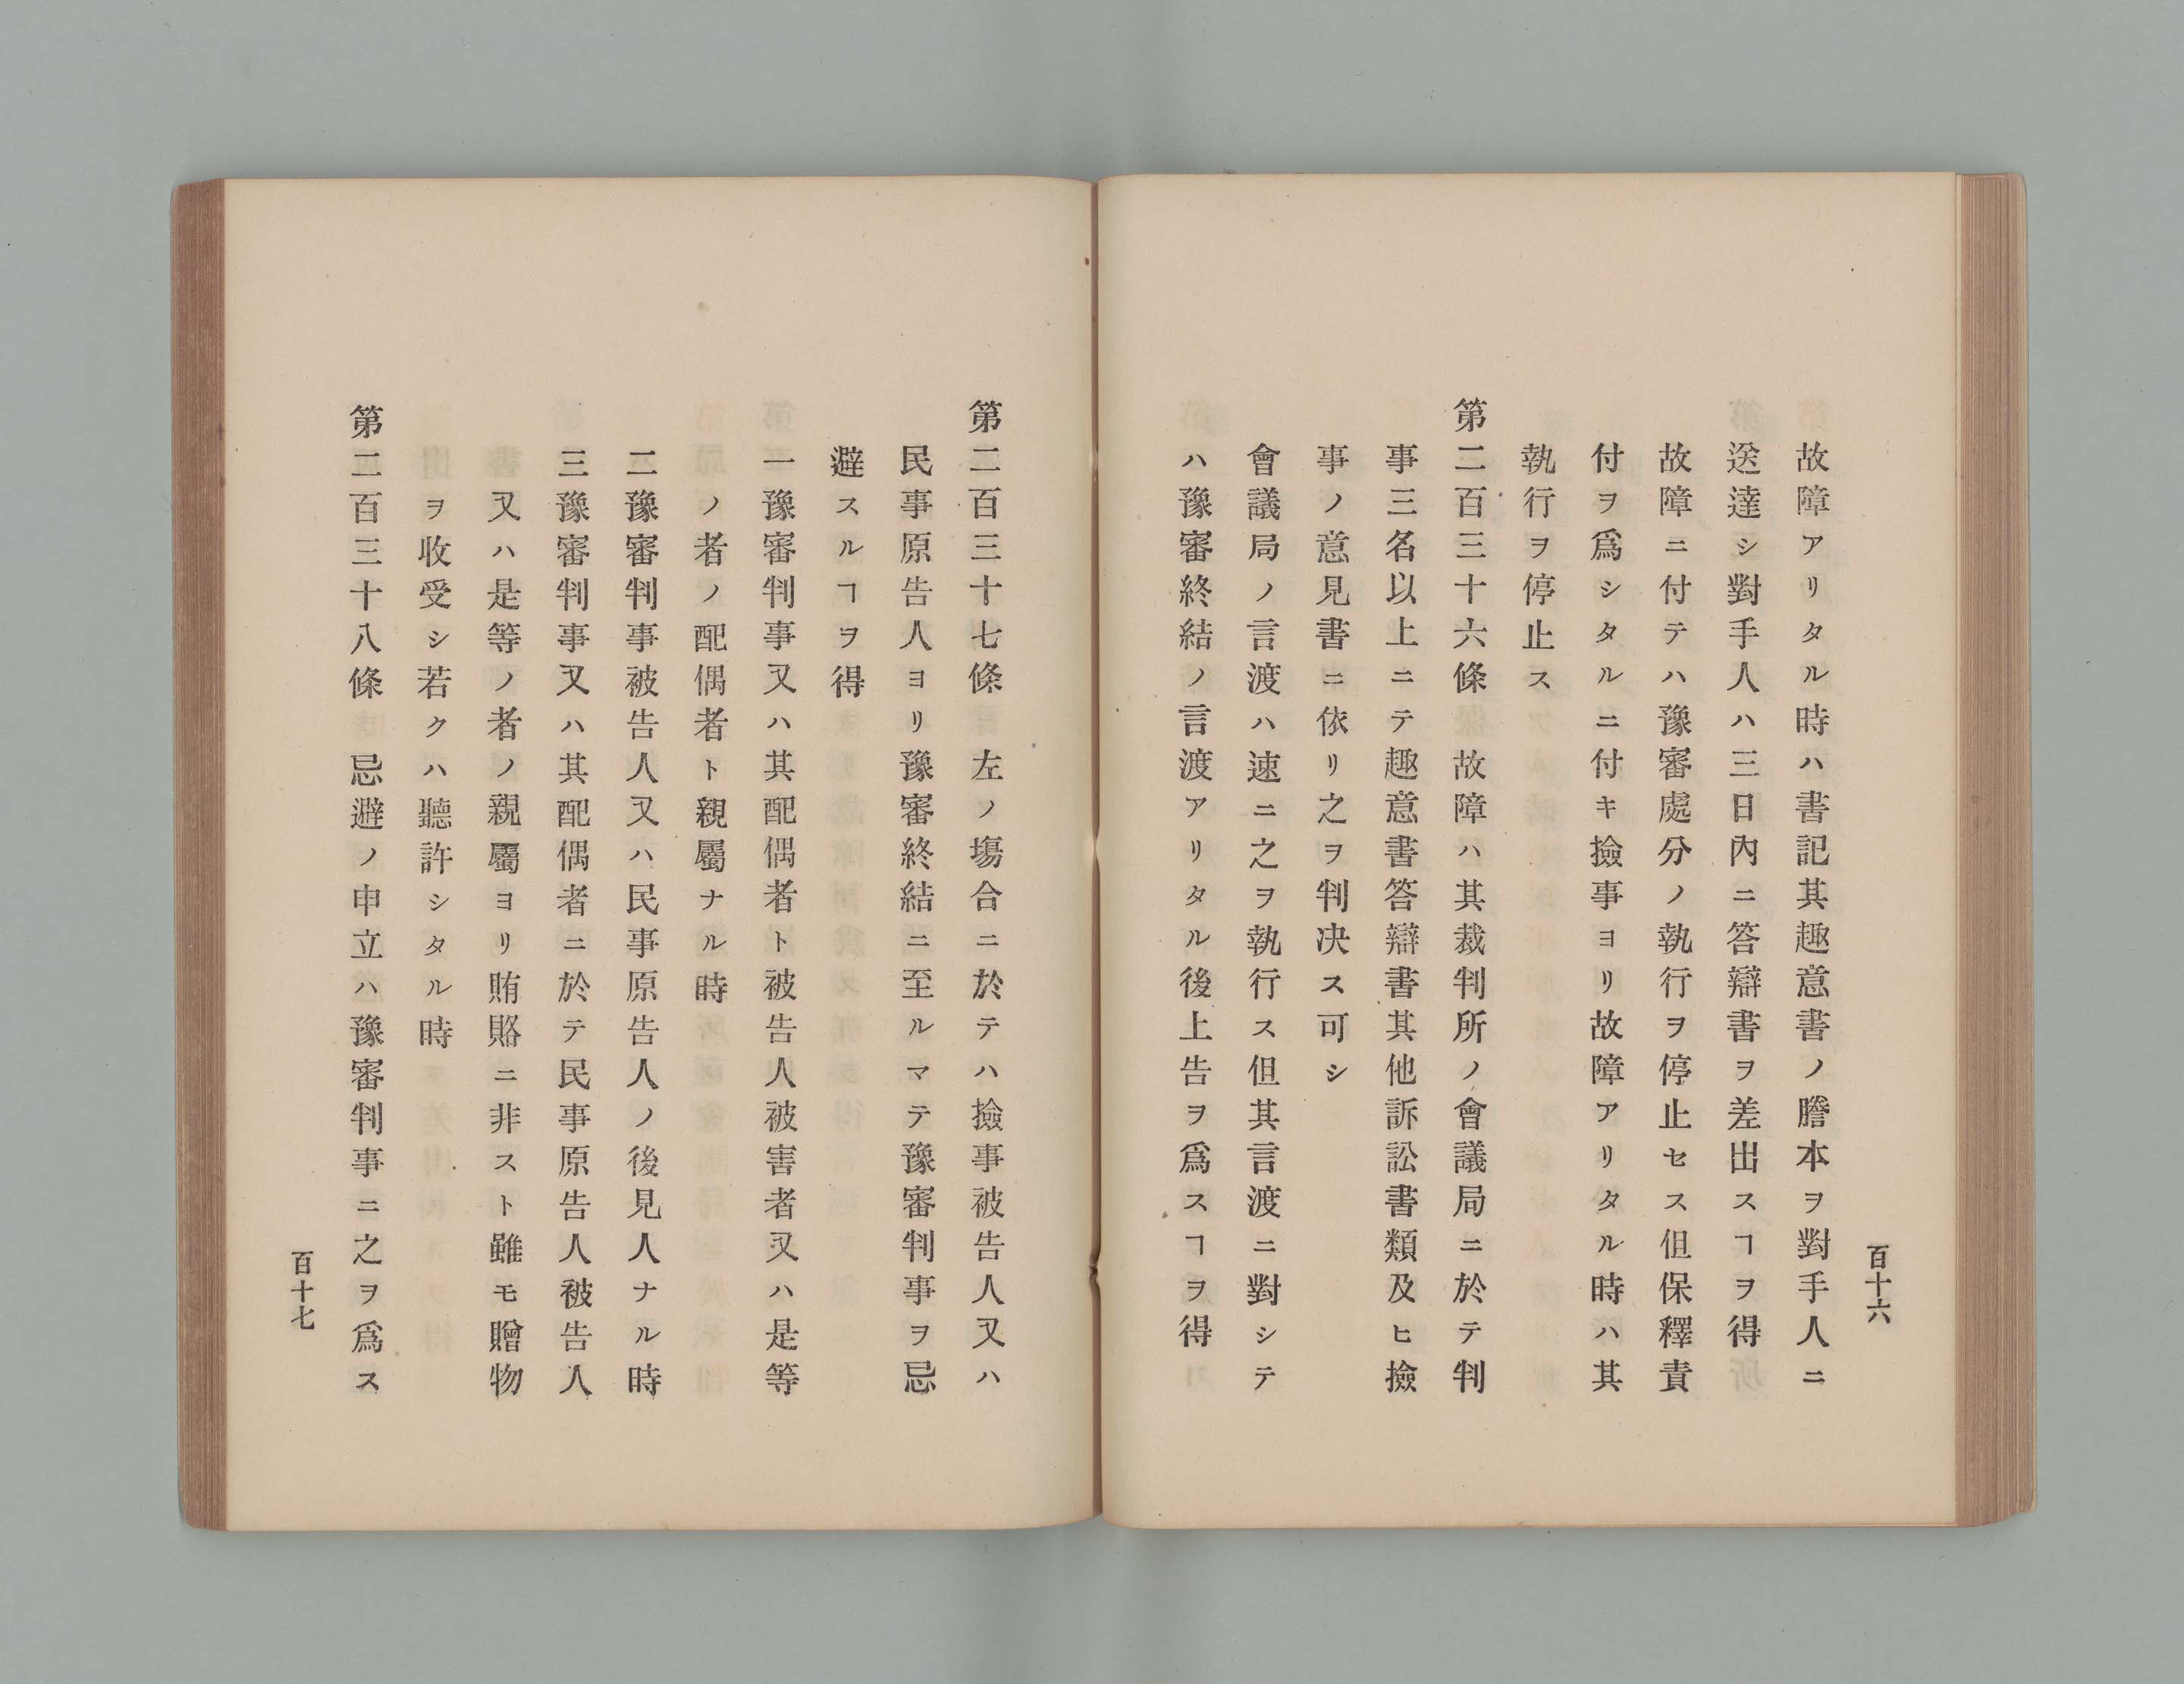 百十六
故障アリタル時ハ書記其趣意書ノ謄本ヲ對手人ニ
送達シ對手人ハ三日內ニ答辯書ヲ差出スヿヲ得
故障ニ付テハ豫審處分ノ執行ヲ停止セス但保釋責
付ヲ爲シタルニ付キ撿事ヨリ故障アリタル時ハ其
執行ヲ停止ス
第二百三十六條 故障ハ其裁判所ノ會議局ニ於テ判
事三名以上ニテ趣意書答辯書其他訴訟書類及ヒ撿
事ノ意見書ニ依リ之ヲ判决ス可シ
會議局ノ言渡ハ速ニ之ヲ執行ス但其言渡ニ對シテ
ハ豫審終結ノ言渡アリタル後上告ヲ爲スヿヲ得
第二百三十七條 左ノ塲合ニ於テハ撿事被告人又ハ
民事原告人ヨリ豫審終結ニ至ルマテ豫審判事ヲ忌
避スルヿヲ得
一豫審判事又ハ其配偶者ト被告人被害者又ハ是等
ノ者ノ配偶者ト親屬ナル時
二豫審判事被告人又ハ民事原告人ノ後見人ナル時
三豫審判事又ハ其配偶者ニ於テ民事原告人被告人
又ハ是等ノ者ノ親屬ヨリ賄賂ニ非スト雖モ贈物
ヲ收受シ若クハ聽許シタル時
第二百三十八條 忌避ノ申立ハ豫審判事ニ之ヲ爲ス
百十七